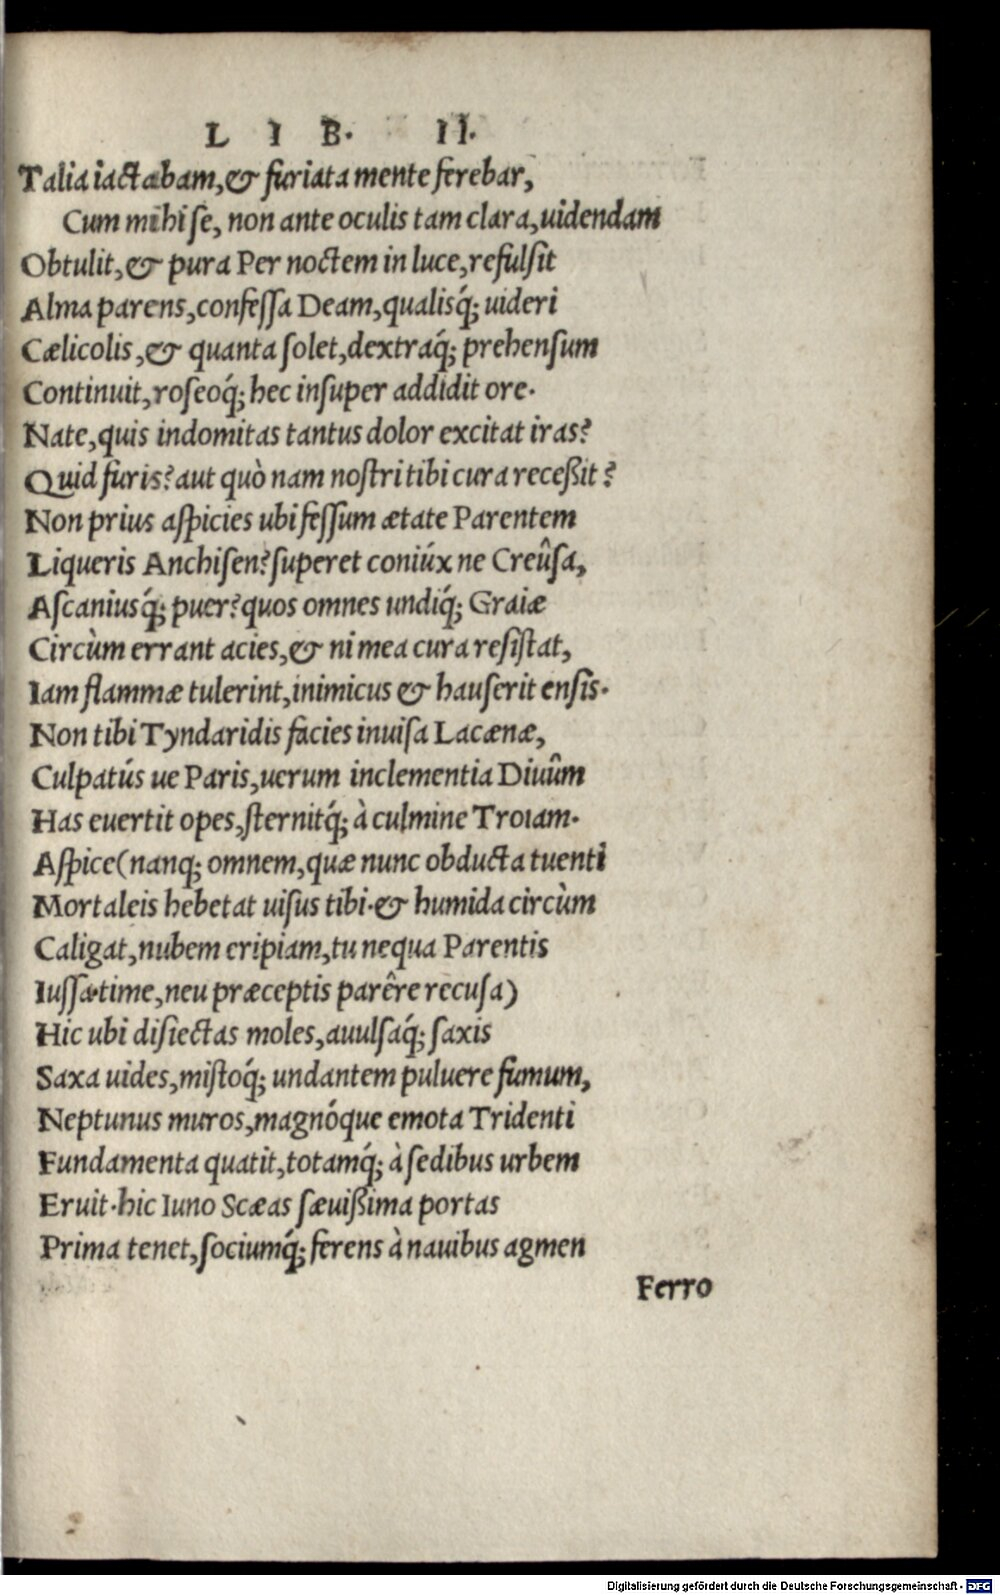 L I B. II.
Talia iactabam,& furiata mente ferebar,
Cum mihi se, non ante oculis tam clara,uidendam
Obtulit,& pura Per noctem in luce,refulsit
Alma parens,confessa Deam,qualisq́; uideri
Cælicolis,& quanta solet,dextraq́; prehensum
Continuit,roseoq́; hec insuper addidit ore.
Nate,quis indomitas tantus dolor excitat iras?
Quid furis?aut quò nam nostri tibi cura receßit?
Non prius aspicies ubi fessum ætate Parentem
Liqueris Anchisen?superet coniúx ne Creûsa,
Ascaniusq́; puer?quos omnes undiq́; Graiæ
Circùm errant acies,& ni mea cura resistat,
Iam flammæ tulerint,inimicus & hauserit ensis.
Non tibi Tyndaridis facies inuisa Lacænæ,
Culpatús ue Paris,uerum inclementia Diuûm
Has euertit opes,sternitq́; à culmine Troiam.
Aspice(nanq; omnem,quæ nunc obducta tuenti
Mortaleis hebetat uisus tibi.& humida circùm
Caligat,nubem eripiam,tu nequa Parentis
Iussa time,neu præceptis parêre recusa)
Hic ubi disiectas moles,auulsaq́; saxis
Saxa uides,mistoq́; undantem puluere fumum,
Neptunus muros,magnóque emota Tridenti
Fundamenta quatit,totamq́; à sedibus urbem
Eruit.hic Iuno Scæas sæuißima portas
Prima tenet,sociumq́; ferens à nauibus agmen
Ferro
Digitalisierung gefördert durch die Deutsche Forschungsgemeinschaft - DFG